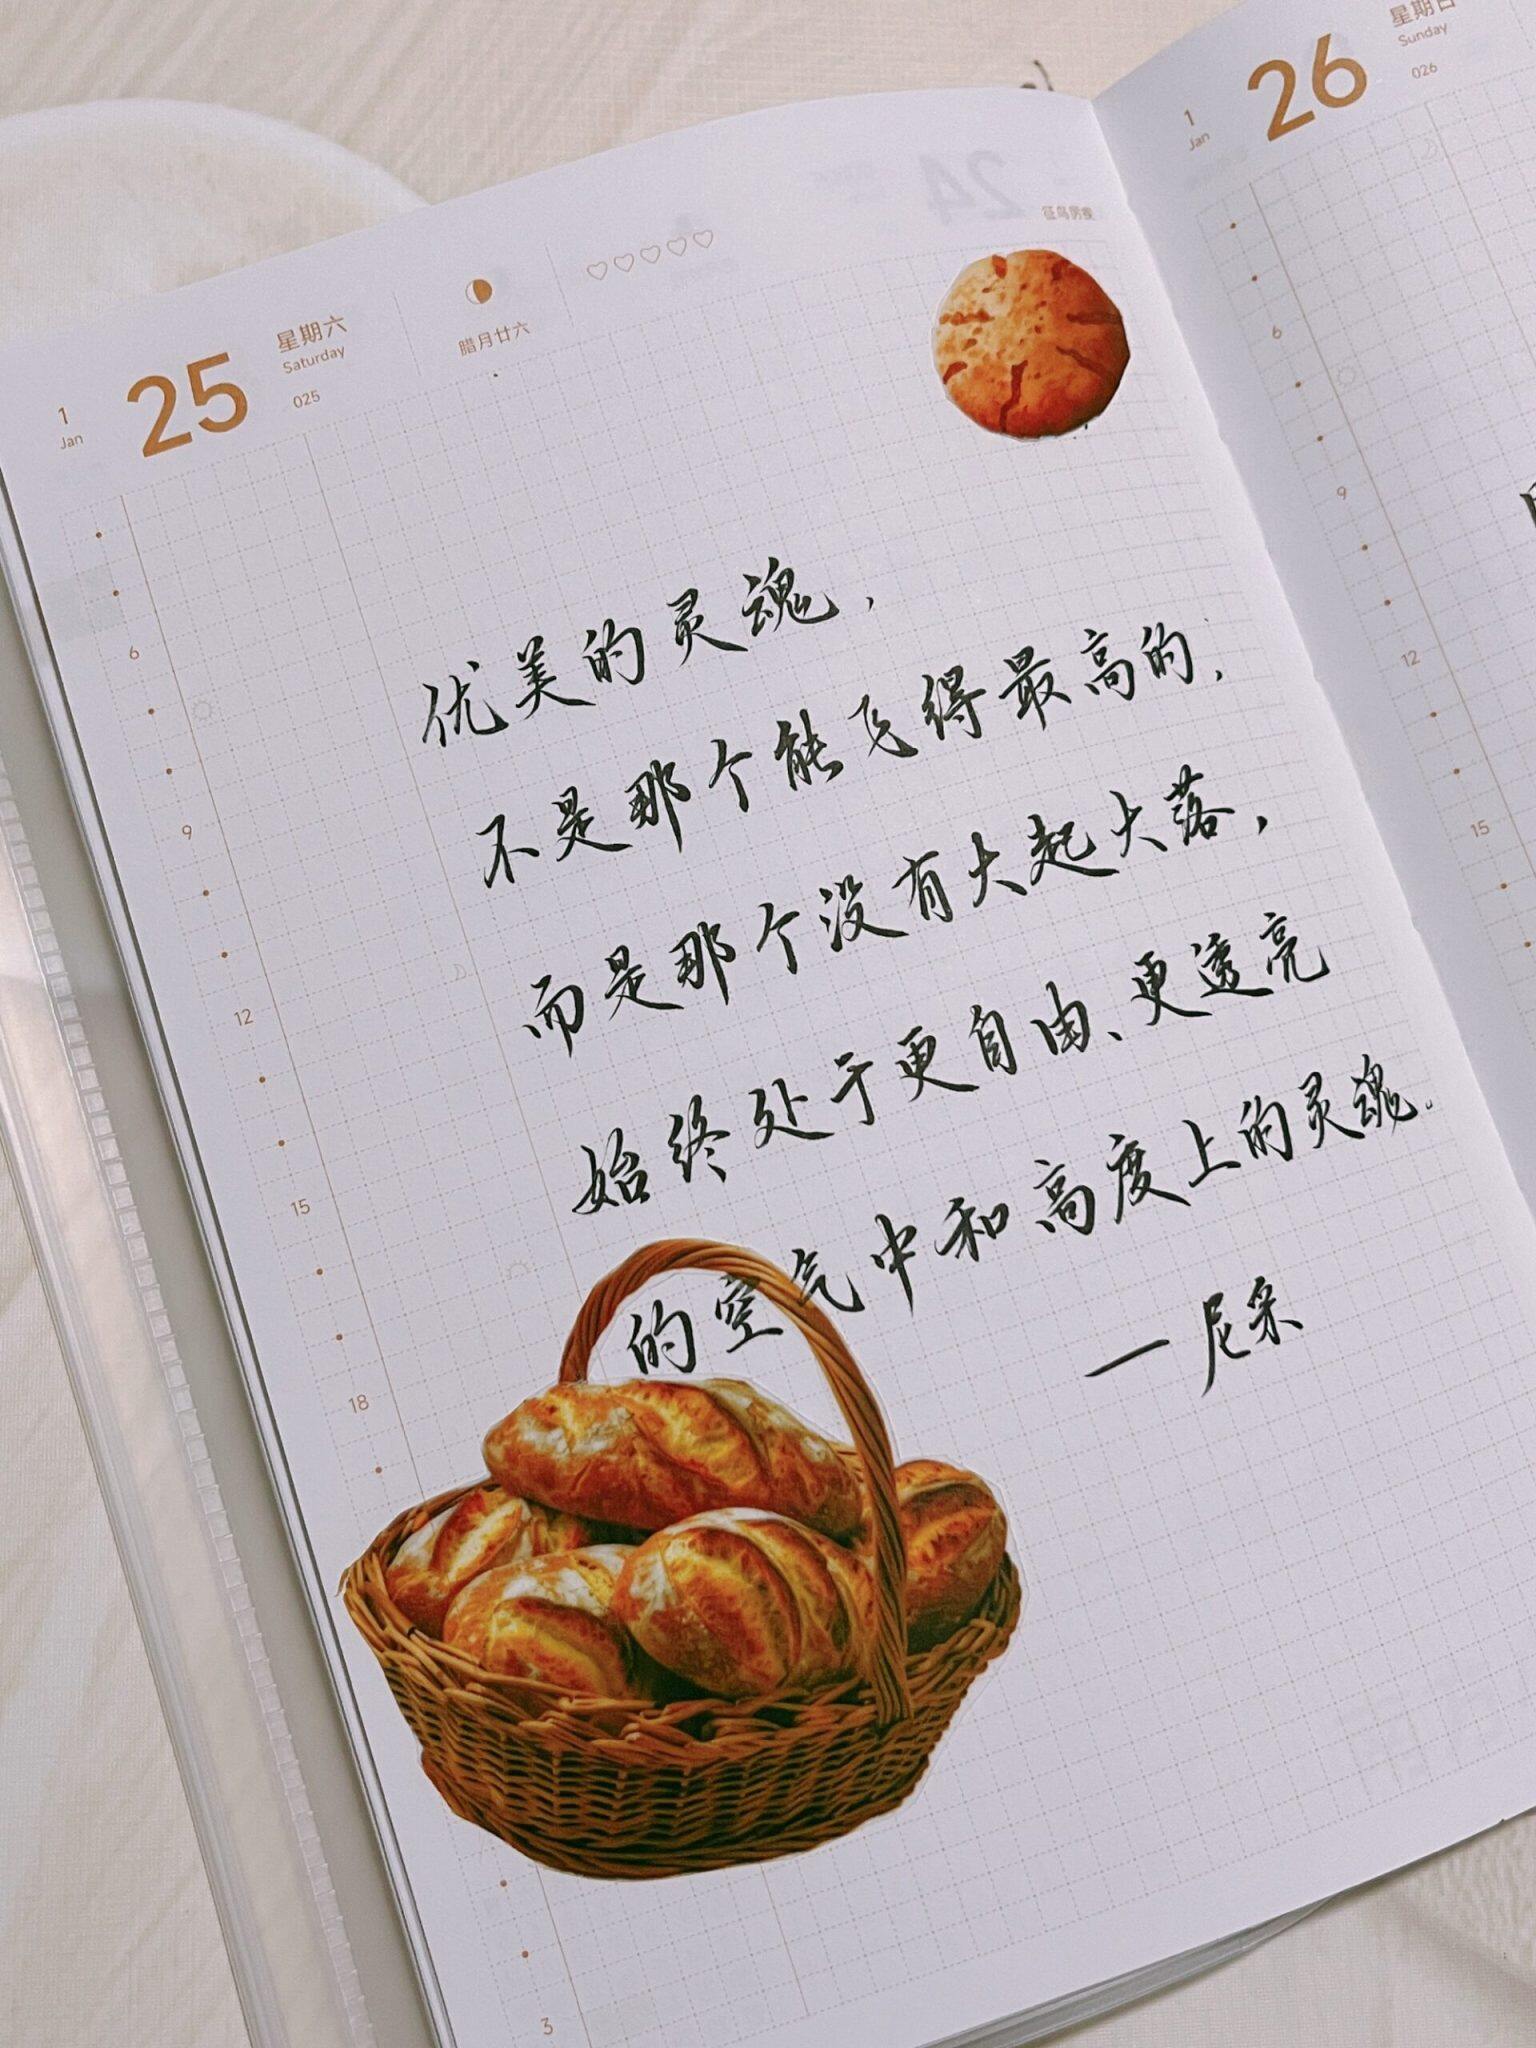 1
Jan
25
星期六
Saturday
025
腊月廿六
24
征鸟厉疾
优美的灵魂，
不是那个能飞得最高的，
而是那个没有大起大落，
始终处于更自由、更透亮
的空气中和高度上的灵魂。
一尼采
6
9
12
15
18
3
1
Jan
26
星期日
Sunday
026
6
9
12
15